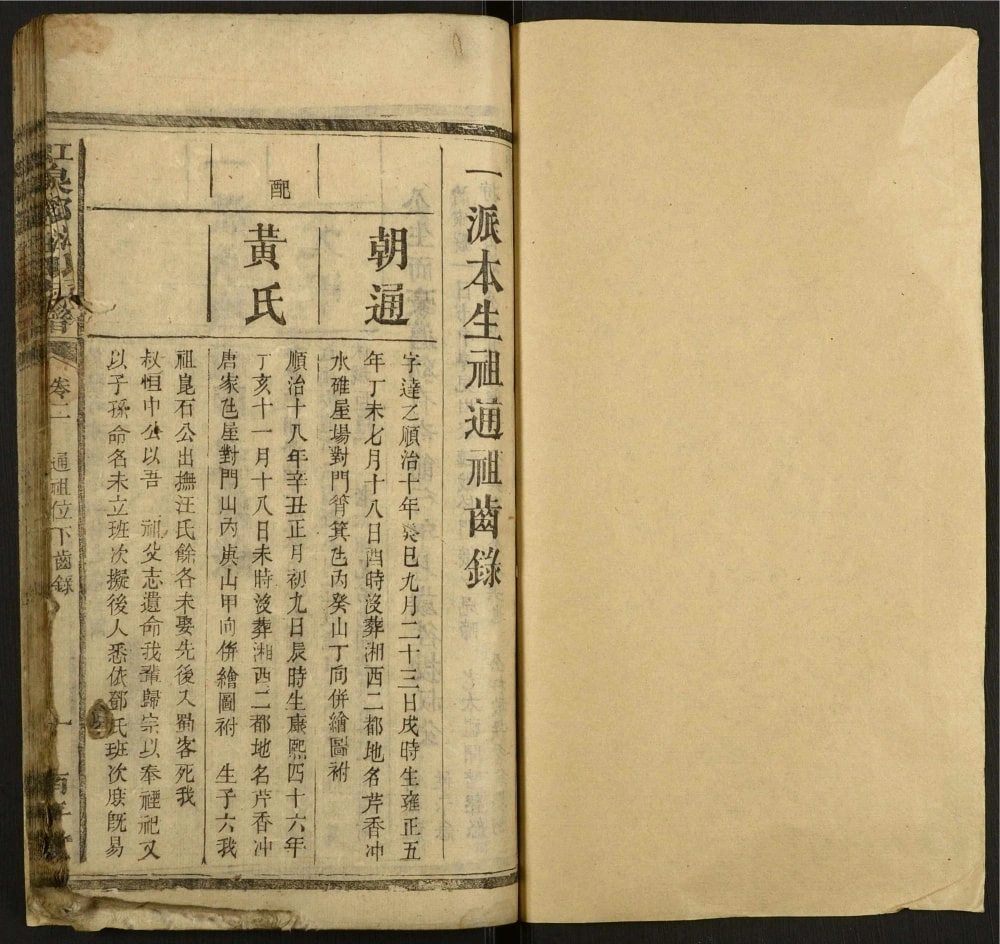 一派本生祖通祖齒錄
朝通
字達之順治十年癸巳九月二十三日戌時生雍正五
年丁未七月十八日酉時沒葬湘西二都地名芹香冲
水碓屋場對門筲箕凼內癸山丁向併繪圖附
配
黃氏
順治十八年辛丑正月初九日辰時生康熙四十六年
丁亥十一月十八日未時沒葬湘西二都地名芹香冲
唐家凼屋對門山內庚山甲向併繪圖附 生子六我
祖崑石公出撫汪氏餘各未娶先後入蜀客死我
叔恒中公以吾 祖父志遺命我輩歸宗以奉禋祀又
以子孫命名未立班次擬後人悉依鄧氏班次庶既易
卷二 通祖位下齒錄